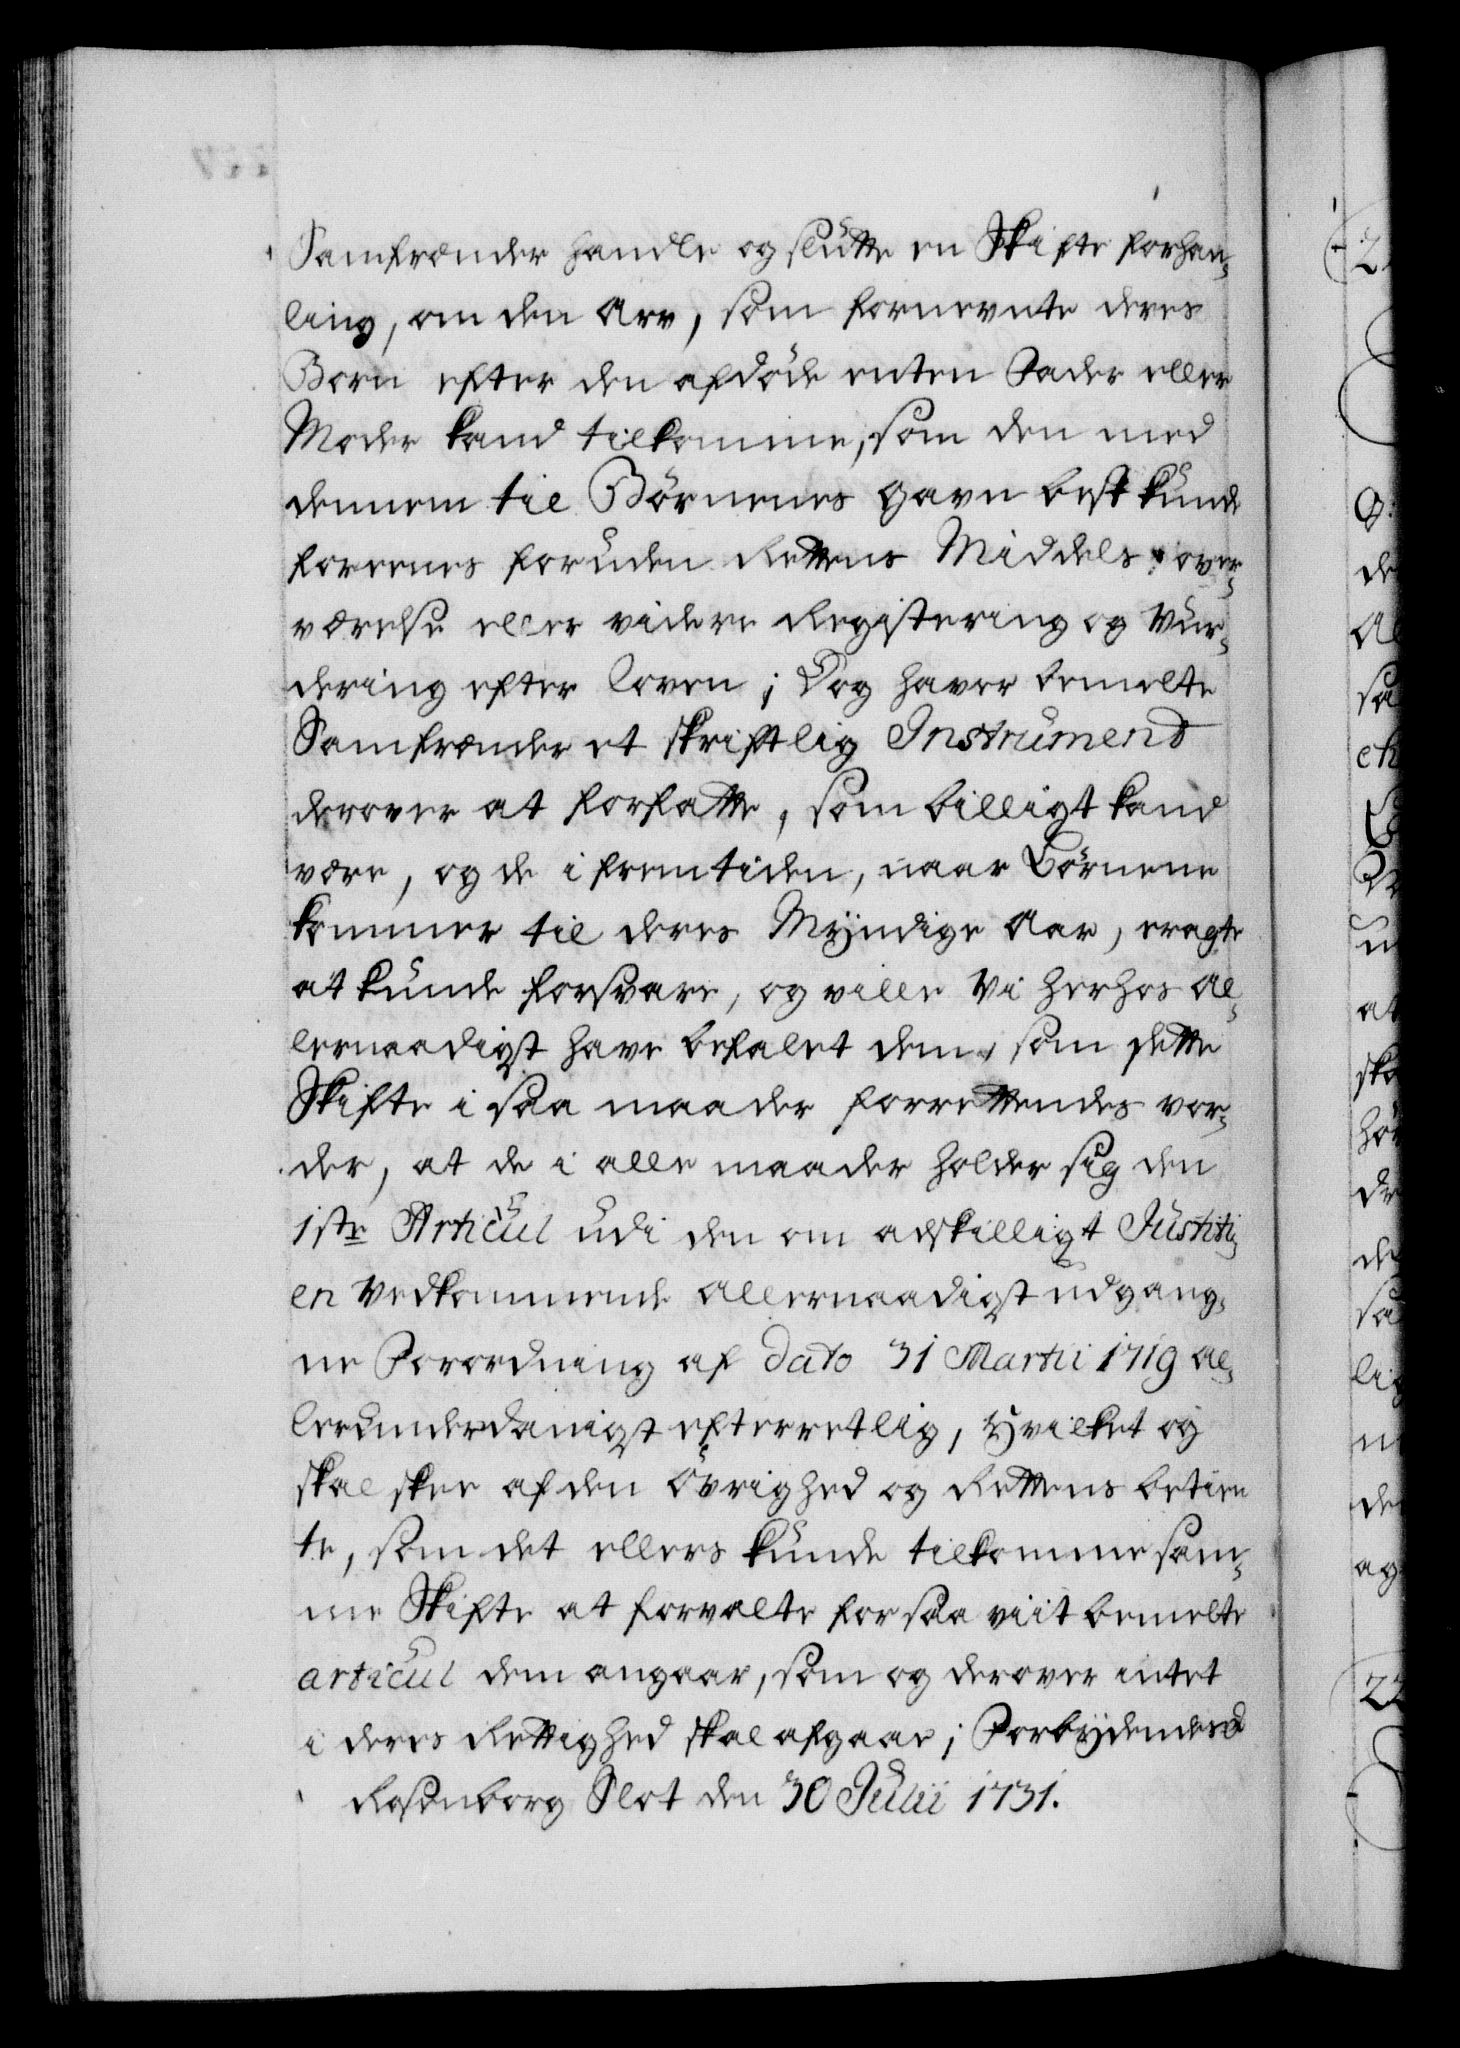 Samfrænder handle og slutte en Skifte forhan-
ling, om den Arv, som fornevnte deres
Børn efter den afdøde enten Fader eller
Moder kand tilkomme, som den med
dennem til Børnenes Gavn best kunde
foreenes foruden Rettens Middels over-
værelse eller videre Registering og Vur-
dering efter loven; Dog haver bemelte
Samfrænder et skriftlig Instrument
derover at forfatte, som billigt kand
være, og de i fremtiden, naar Børnene
kommer til deres Myndige Aar, eragte
at kunde forsvare, og ville Vi herhos Al-
lernaadigst have befalet dem, som dette
Skifte i saa maader forrettendes vor-
der, at de i alle maader holder sig den
1ste Articul udi den om adskilligt Justiti-
en Vedkommende Allernaadigst udgang-
ne Forordning af dato 31 Martii 1719 al-
lerunderdanigst efterretlig, Hvilket og
skal skee af den Øvrighed og Rettens betien
te, som det ellers kunde tilkomme sam-
me Skifte at forvalte for saa viit bemelte
articul dem angaar, som og derover intet
i deres Rettighed skal afgaae; Forbydendes
Rosenborg Slot den 30 Julii 1731.